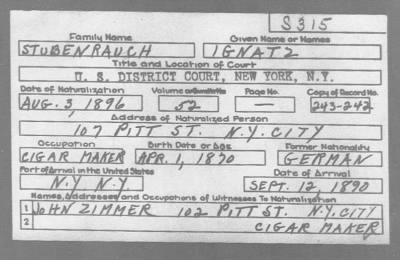 S315
Family Name Given Name or Names
STUBENRAUCH IGNATZ
Title and Location of Court
U. S. DISTRICT COURT, NEW YORK, N.Y.
Date of Naturalization Volume or Bundle No. Page No. Copy of Record No.
AUG. 3, 1896 52 — 243-242
Address of Naturalized Person
107 PITT ST. N.Y. CITY
Occupation Birth Date or Age Former Nationality
CIGAR MAKER APR. 1, 1870 GERMAN
Port of Arrival in the United States Date of Arrival
N.Y. N.Y. SEPT. 12, 1890
Names, Addresses and Occupations of Witnesses To Naturalization
1 JOHN ZIMMER 102 PITT ST. N.Y. CITY
2 CIGAR MAKER